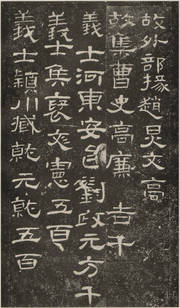 故外部掾趙炅文高
故集曹史高廉吉千
義士河東安邑劉政元方千
義士侯褒文憲五百
義士潁川臧就元就五百